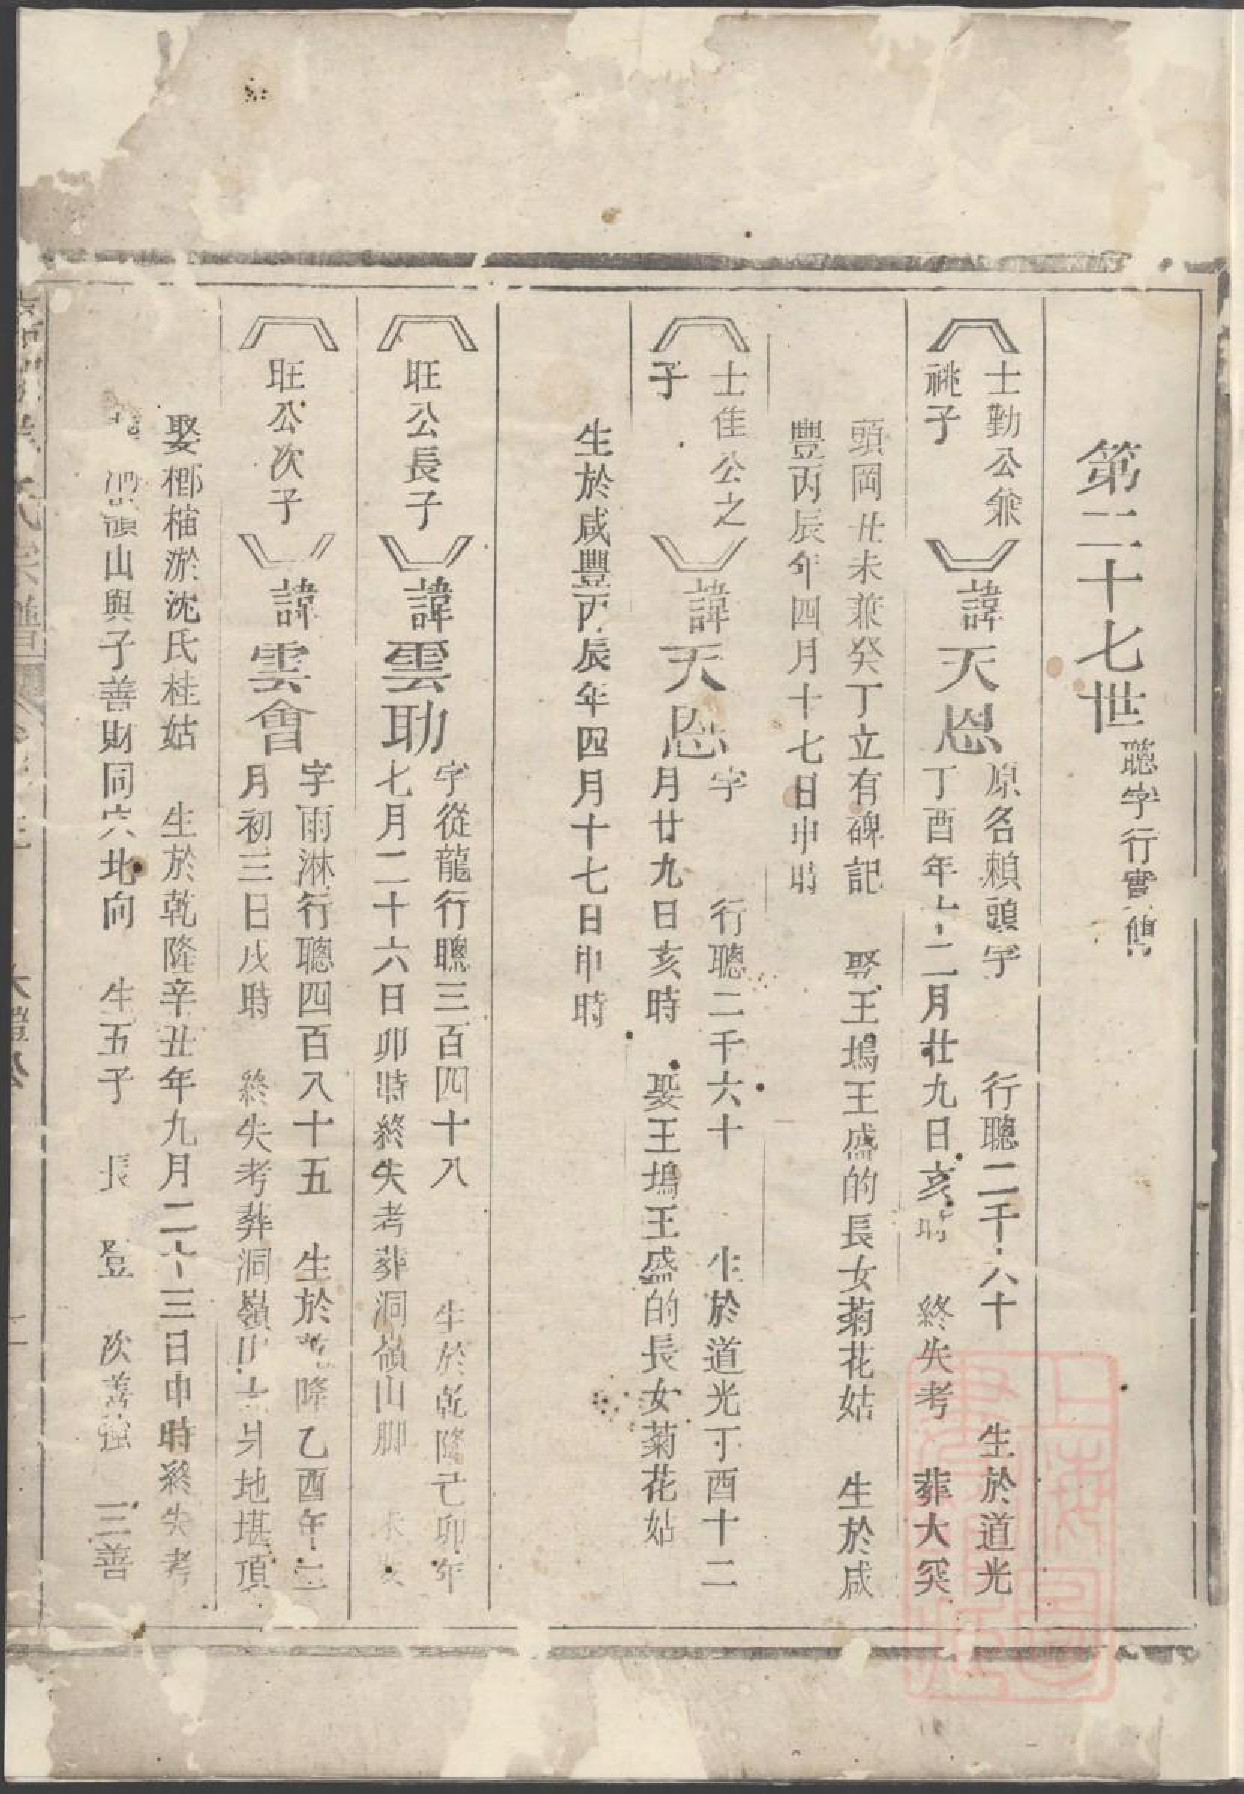 第二十七世
聰字行實傳
士勤公兼
祧子
諱天恩
原名賴頭字 行聰二千六十 生於道光
丁酉年十二月廿九日亥時 終失考 葬大突
頭岡丑未兼癸丁立有碑記 娶王塢王盛的長女菊花姑 生於咸
豐丙辰年四月十七日申時
士佳公之
子
諱天恩
字 行聰二千六十 生於道光丁酉十二
月廿九日亥時 娶王塢王盛的長女菊花姑
生於咸豐丙辰年四月十七日申時
旺公長子
諱雲助
字從龍行聰三百四十八 生於乾隆己卯年
七月二十六日卯時終失考葬洞嶺山脚 未娶
旺公次子
諱雲會
字雨淋行聰四百八十五 生於乾隆乙酉年三
月初三日戌時 終失考葬洞嶺山 地堪頂
娶椰楠淤沈氏桂姑 生於乾隆辛丑年九月二十三日申時終失考
嶺山與子善財同穴北向 生五子 長 登 次善強 三善
氏宗譜